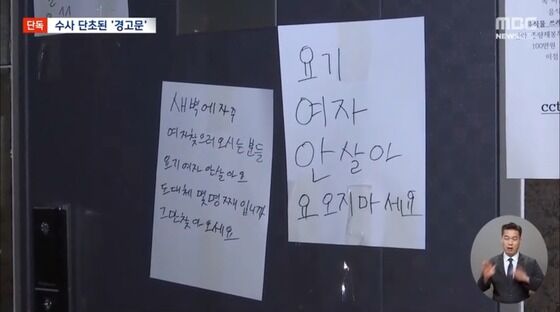 단독 수사 단초된 '경고문'
MBC
NEWS
새벽에자주
여자찾으러 오시는 분들
요기 여자 안살아요
도대체 몇명 째 입니까
그만찾아오세요
요기
여자
안살아
요 오지마세요
100만원
cct